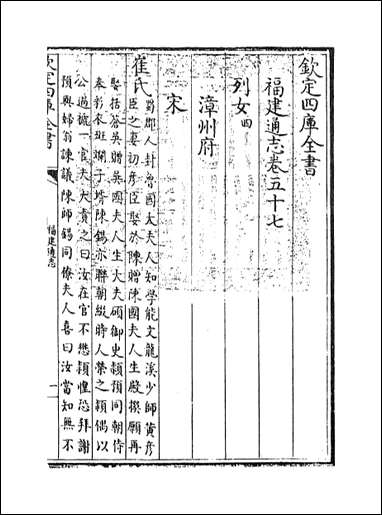 欽定四庫全書
福建通志卷五十七
列女四
漳州府
宋
崔氏
蜀郡人封魯國太夫人知學能文龍溪少師黃彥
臣之妻初彥臣娶於陳贈陳國夫人生殿撰願再
娶括蒼吳贈吳國夫人生大夫碩御史穎預同朝侍
奉彩衣斑斕子壻陳錫亦聯朝綴時人榮之穎偶以
公過謫一官夫人責之曰汝在官不懋穎惶恐拜謝
預與婦翁諫議陳師錫同僚夫人喜曰汝當知無不
欽定四庫全書
福建通志
一